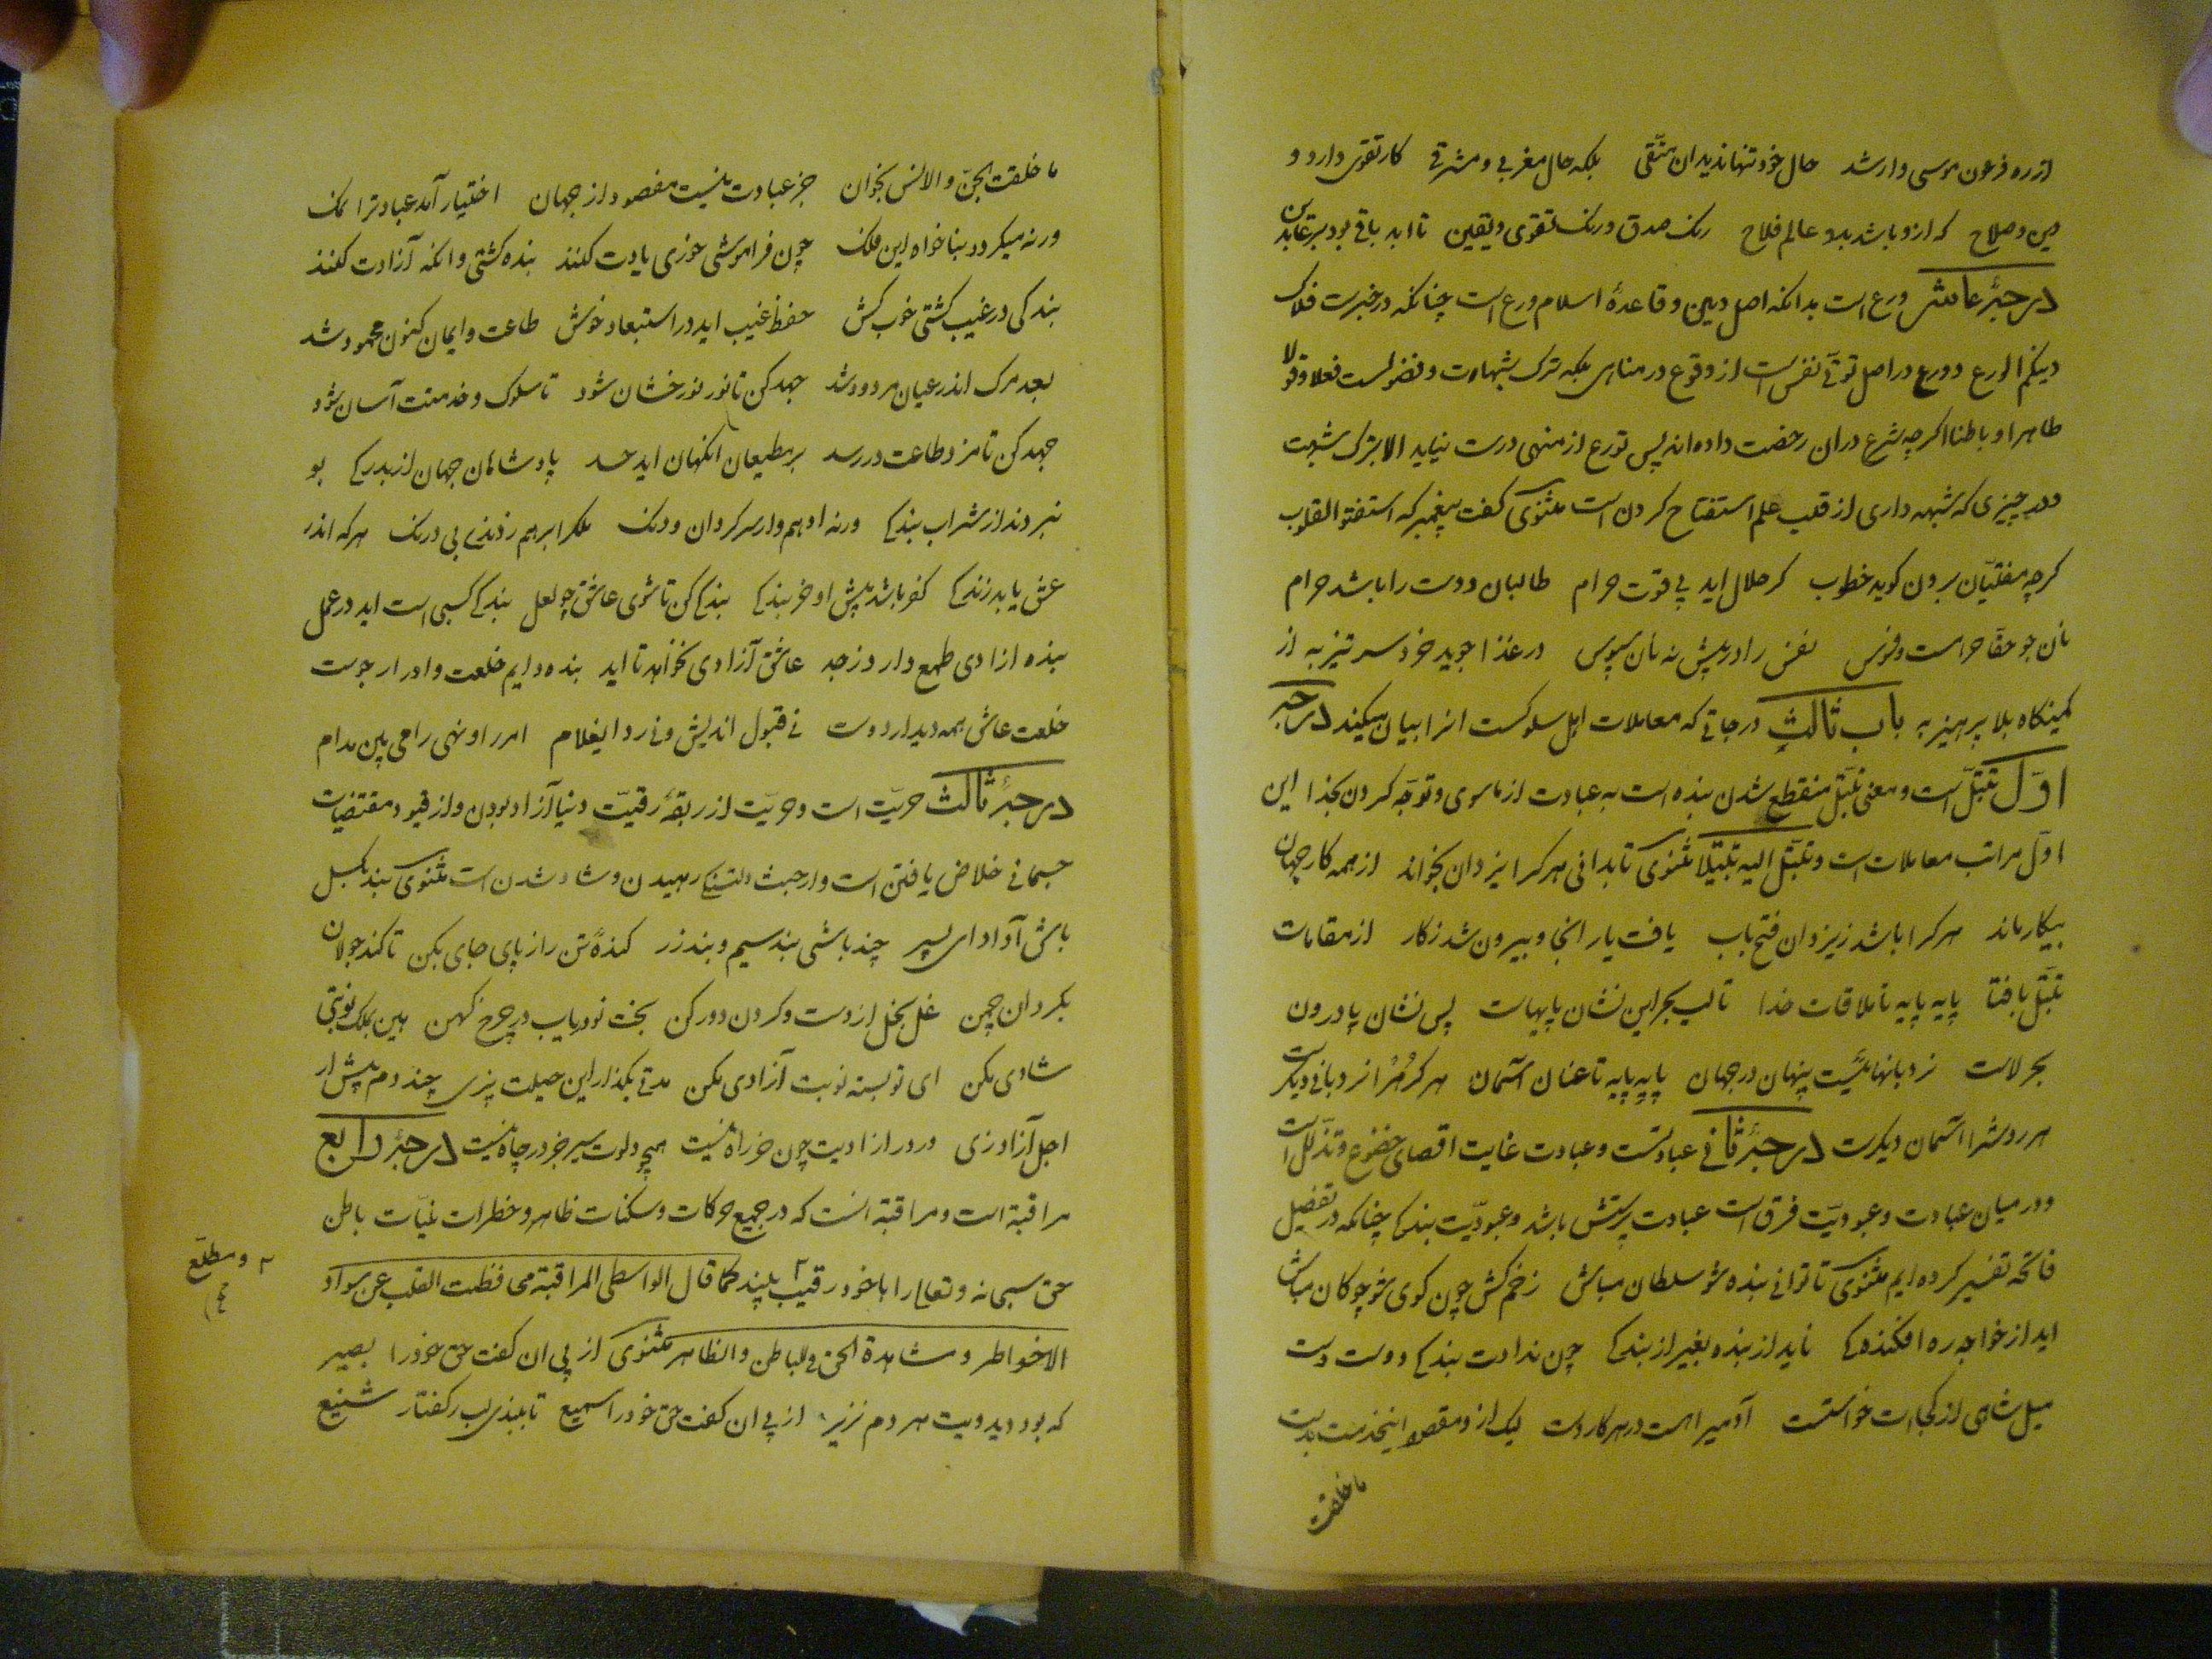 از ره فرعون موسی وارشد حال خود تنها ندید ان متقی بلکه حال مغربی و مشرقی کار تقوی دارد و
دین و صلاح که ازو باشد بدو عالم فلاح رنک صدق و رنک تقوی و یقین تا ابد باقی بود بر عابدین
درجهٔ عاشر ورع است بدانکه اصل دین و قاعدهٔ اسلام ورع است چنانکه در خبرست ملاک
دینکم الورع و ورع در اصل توقّی نفس است از وقوع در مناهی بلکه ترک شبهات و فضولست فعلا و قولا
ظاهرا و باطنا اکرچه شرع دران رخصت داده اند پس تورع از منهی درست نیاید الا بترک شبهت
و در چیزی که شبهه داری از قلب علم استفتاح کردن است مثنوی کفت پیغمبر که استفتوا القلوب
کرچه مفتیان برون کوید خطوب کر حلال اید پی قوت حرام طالبان دوست را باشد حرام
نان جو حقا حرامست و فسوس نفس را در پیش نه نان سپوس در غذا جوید خرد سر تیز به از
کمینکاه بلا پرهیز به باب ثالث درجاتی که معاملات اهل سلوکست انرا بیان میکند درجهٔ
اوّل تبتّل است و معنی تبتّل منقطع شدن بنده است به عبادت از ماسوی و توجّه کردن بخدا این
اول مراتب معاملات است و تبتّل الیه تبتیلا مثنوی تا بدانی هر کرا ایزدان بخواند از همه کار جهان
بیکار ماند هر کرا باشد زیزدان فتح باب یافت یار انجا و بیرون شد زکار از مقامات
تبتّل تا فنا پایه پایه تا ملاقات خدا تا لب بحر این نشان پایهاست پس نشان پا درون
بحر لاست نردبانهاییست پنهان در جهان پایه پایه تا عنان آسمان هر کره را نردبانی دیکرست
هر روشرا آسمان دیکرست درجهٔ ثانی عبادتست و عبادت غایت اقصای خضوع و تذلل است
و در میان عبادت و عبودیّت فرق است عبادت پرستش باشد و عبودّیت بندکی چنانکه در تفصیل
فاتحه تفسیر کرده ایم مثنوی تا توانی بنده شو سلطان مباش زخم کش چون کوی شو چوکان مباش
اید از خواجه ره افکنده کی ناید از بنده بغیر از بندکی چون ندادت بندکی دوست دست
میل شاهی از کجا است خواستست آدمیرا هست در هر کار دست لیک ازو مقصود اینخدمت بدست
ما خلقت
ما خلقت الجنّ و الانس بخوان جز عبادت نیست مقصود از جهان اختیار آمد عبادترا نمک
ورنه میکردد بناخواه این فلک چون فراموشی خوزی یادت کنند بنده کشتی وانکه آزادت کنند
بندکی در غیب کشتی خوب کش حفظ غیب اید در استعباد خوش طاعت و ایمان کنون محمود شد
بعد مرک اندر عیان مردود شد جهد کن تا نور نو رخشان شود تا سلوک و خدمتت آسان شود
جهد کن تا مزد طاعت در رسد بر مطیعان انکهان اید حسد پادشاهان جهان از بدرکی بو
نبردند از شراب بندکی ورنه ادهم وار سرکردان و دنک ملکرا برهم زدندی بی درنک هرکه اندر
عشق یابد زندکی کفر باشد پیش او جز بندکی بندکی کن تا شوی عاشق چو لعل بندکی کسبی است اید در عمل
بنده ازادی طمع دارد ز جد عاشق آزادی نخواهد تا ابد بنده دایم خلعت و ادرار جوست
خلعت عاشق همه دیدار دوست نی قبول اندیش و نی رد ایغلام امر را و نهی را می بین مدام
درجهٔ ثالث حریّت است و حریّت از ربقهٔ رقیّت دنیا آزاد بودن و از قیود مقتضیات
جسمانی خلاص یافتن است و از حبث دلتنکی رهیدن و شاد شدن است مثنوی بند بکسل
باش آزاد ای پسر چند باشی بند سیم و بند زر کندهٔ تن را ز پای جای بکن تا کند جولان
بکردان چمن غل بخل از دست و کردن دور کن بخت نو دریاب در چرخ کهن هین بملک نوبتی
شادی مکن ای تو بسته نوبت آزادی مکن مدتی بکذار این حیلت پزی چند دم پیش از
اجل آزاد زی ور در ازادیت چون خر راه نیست همچو دلوت سیر جز در چاه نیست درجهٔ رابع
مراقبة است و مراقبة انست که در جمیع حرکات و سکنات ظاهر و خطرات نیّات باطن
حق سبحانه و تعالی را با خود رقیب ٢ بیند کما قال الواسطی المراقبة محافظت القلب عن سواد
الاخواطر و مشاهدة الحق فی الباطن و الظاهر مثنوی از پی ان کفت حق خود را بصیر
که بود دید ویت هر دم نزیر از پی ان کفت حق خود را سمیع تا ببندی لب ز کفتار شنیع
٢ و مطلع